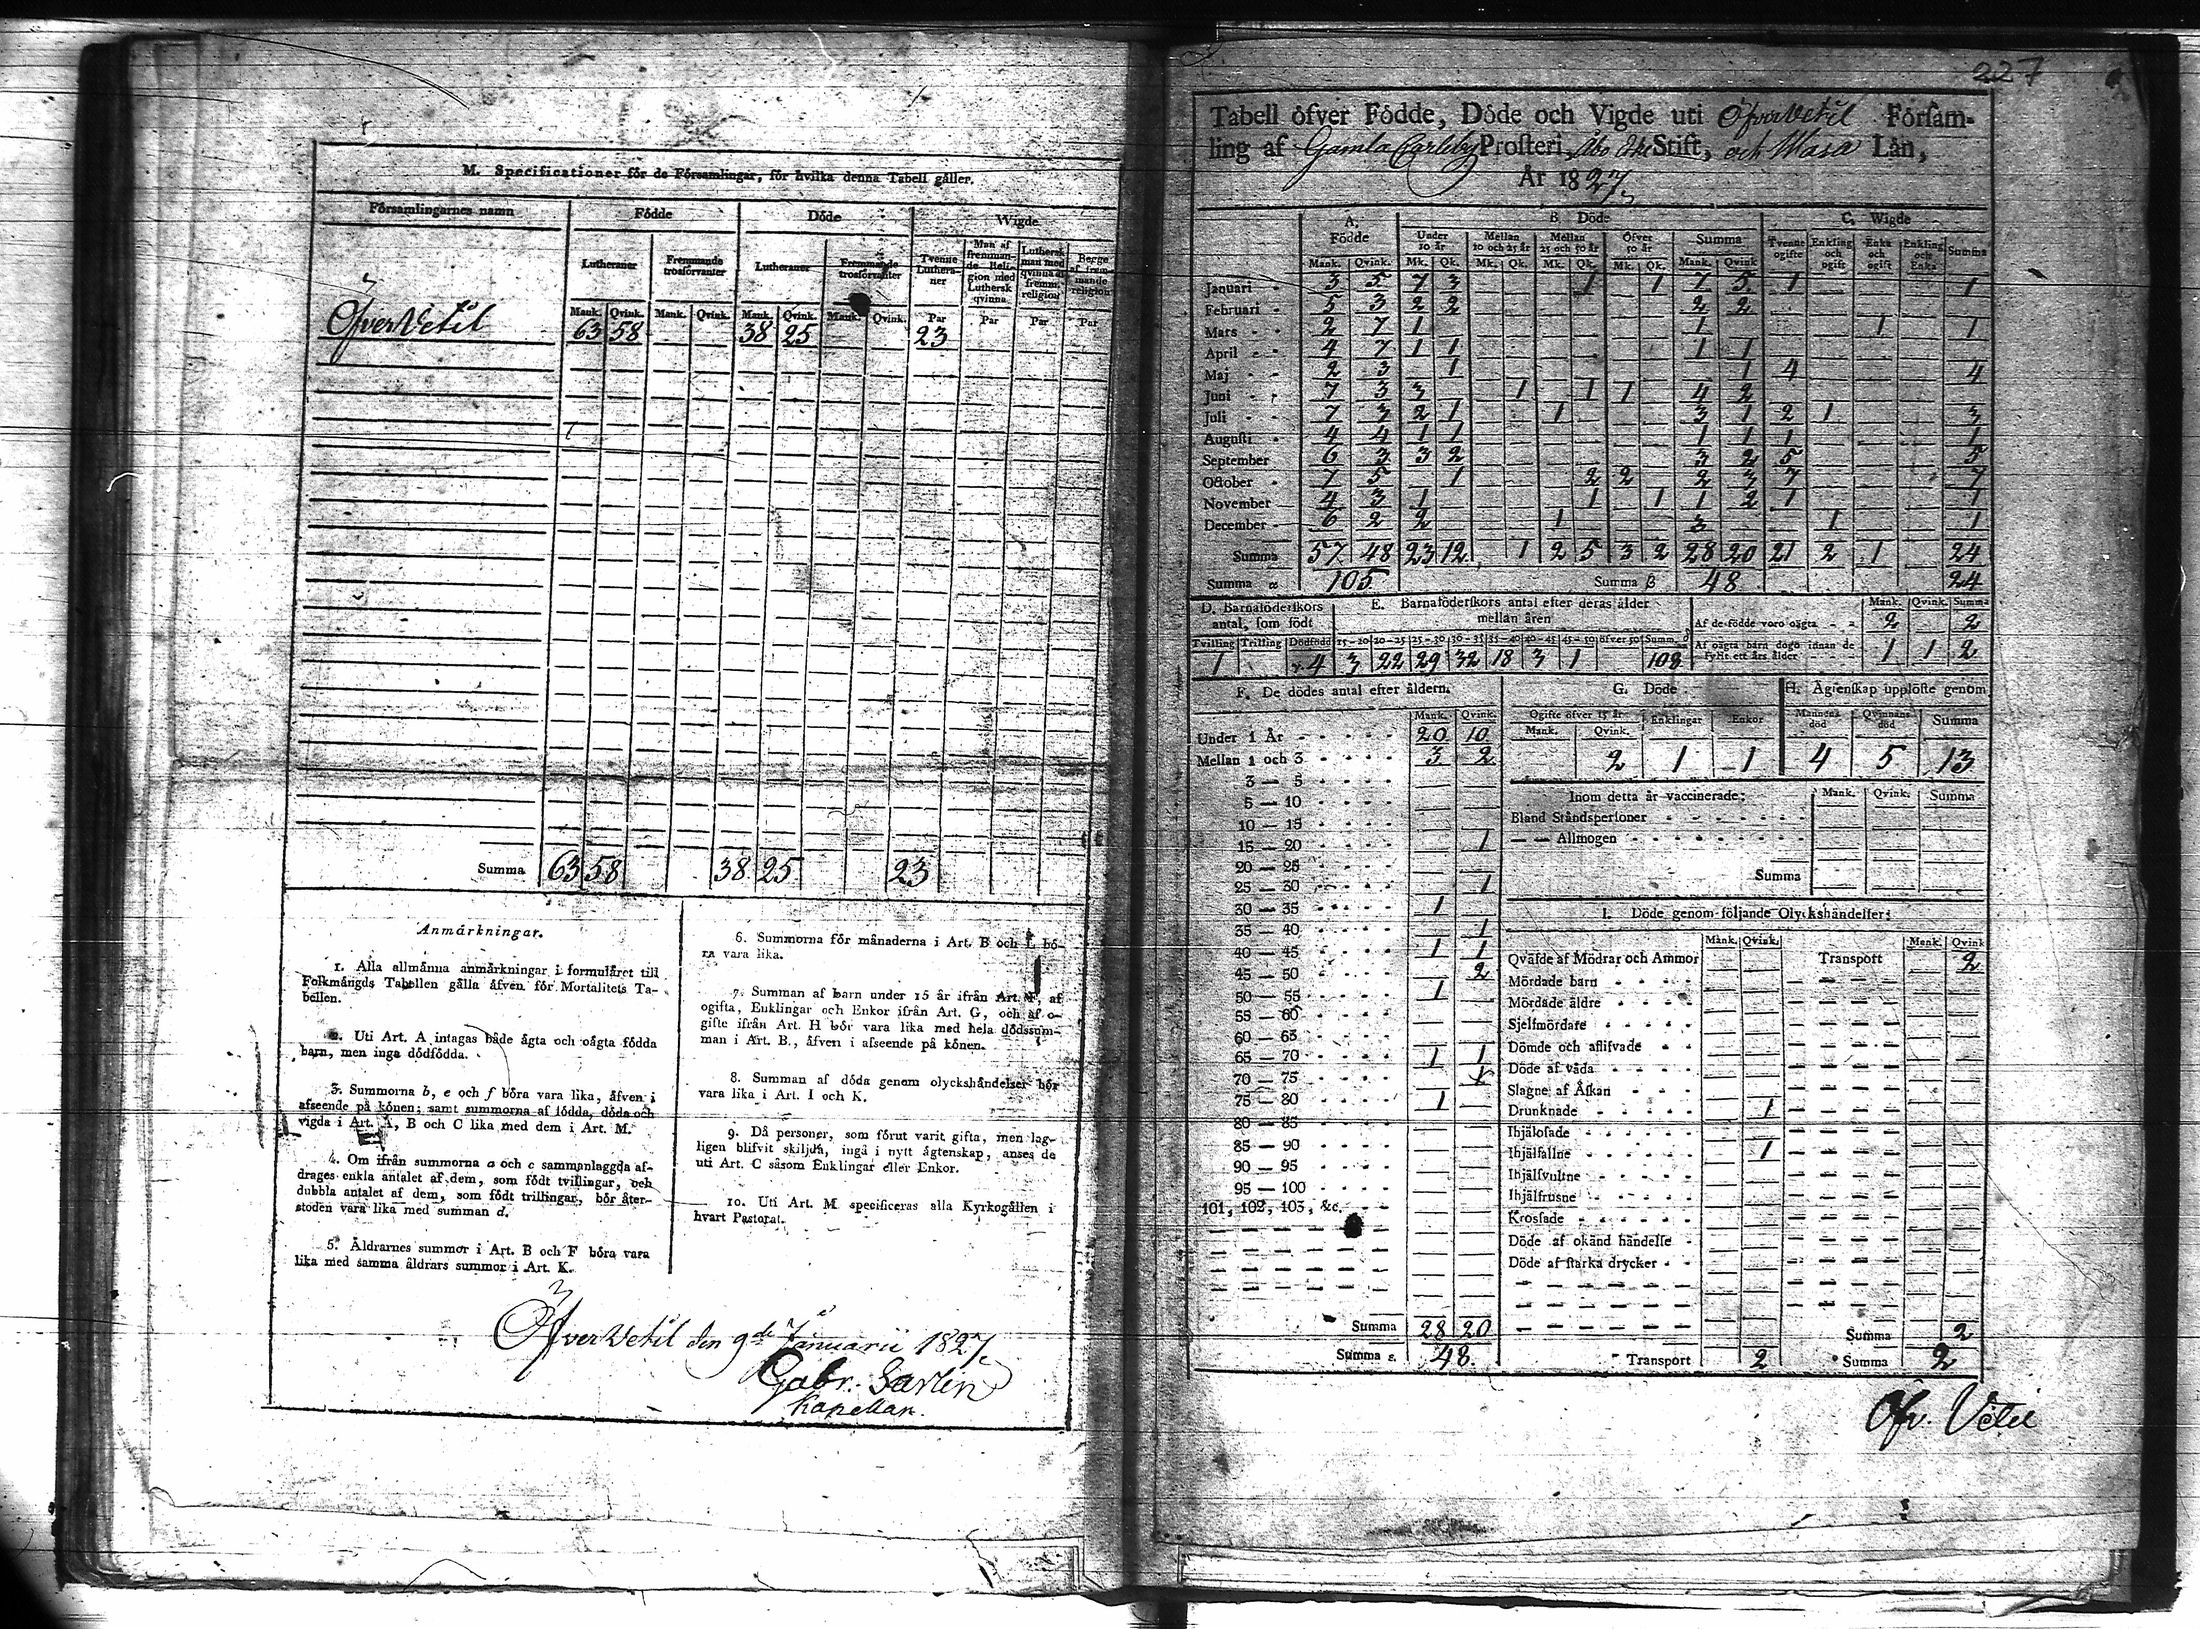 M. Specificationer för de Församlingar, för hvilka denna Tabell gäller.
Församlingarnes namn Födde Döde Wigde
Lutheraner Fremmande trosförvanter Lutheraner Fremmande trosförvanter Tvenne Lutheraner Man af fremmande Religion med Luthersk qvinna Luthersk man med qvinna af fremm. religion Begge af fremmande religion
Mank. Qvink. Mank. Qvink. Mank. Qvink. Mank. Qvink. Par Par Par Par
ÖfverVetil 63 58 38 25 23
Summa 63 58 38 25 23
Anmärkningar.
1. Alla allmänna anmärkningar i formuläret till
Folkmängds Tabellen gälla äfven för Mortalitets Ta-
bellen.
2. Uti Art. A intagas både ägta och oägta födda
barn, men inga dödfödda.
3. Summorna b, e och f böra vara lika, äfven i
afseende på könen; samt summorna af födda, döda och
vigda i Art. A, B och C lika med dem i Art. M.
4. Om ifrån summorna a och c sammanlaggda af-
drages enkla antalet af dem, som födt tvillingar, och
dubbla antalet af dem, som födt trillingar, bör åter-
stoden vara lika med summan d.
5. Äldrarnes summor i Art. B och F böra vara
lika med samma äldrars summor i Art. K.
6. Summorna för månaderna i Art. B och L bö-
ra vara lika.
7. Summan af barn under 15 år ifrån Art. F, af
ogifta, Enklingar och Enkor ifrån Art. G, och af o-
gifte ifrån Art. H bör vara lika med hela dödssum-
man i Art. B., äfven i afseende på könen.
8. Summan af döda genom olyckshändelser bör
vara lika i Art. I och K.
9. Då personer, som förut varit gifta, men lag-
ligen blifvit skiljda, ingå i nytt ägtenskap, anses de
uti Art. C såsom Enklingar eller Enkor.
10. Uti Art. M specificeras alla Kyrkogällen i
hvart Pastorat.
ÖfverVetil den 9de Januarii 1827
Gabr. Sarlin
Kapellan.
227
Tabell öfver Födde, Döde och Vigde uti ÖfverVetil Försam-
ling af Gamla Carleby Prosteri, Åbo Stift, och Wasa Län,
År 1827.
A. Födde B. Döde C. Wigde
Under 10 år Mellan 10 och 25 år Mellan 25 och 50 år Öfver 50 år Summa Tvenne ogifte Enkling och ogift Enka och ogift Enkling och Enka Summa
Mank. Qvink. Mk. Qk. Mk. Qk. Mk. Qk. Mk. Qk. Mank. Qvink
Januari 3 5 7 3 1 1 7 5 1 1
Februari 5 3 2 2 2 2
Mars 2 7 1 1 1 1
April 4 7 1 1 1 1
Maj 2 3 1 1 4 4
Juni 7 3 3 1 1 1 4 2
Juli 7 3 2 1 1 3 1 2 1 3
Augusti 4 4 1 1 1 1 1 1
September 6 3 3 2 3 2 5 5
October 7 5 1 2 2 2 3 7 7
November 4 3 1 1 1 1 2 1 1
December 6 2 2 1 3 1 1
Summa 57 48 23 12 1 2 5 3 2 28 20 21 2 1 24
Summa α 105 Summa β 48 24
D. Barnaföderskors antal, som födt E. Barnaföderskors antal efter deras ålder mellan åren Mank. Qvink. Summa
Af de födde voro oägta 2 2
Tvilling Trilling Dödfödd 15-20 20-25 25-30 30-35 35-40 40-45 45-50 öfver 50 Summ. δ
Af oägta barn dogo innan de fyllt ett års ålder 1 1 2
1 4 3 22 29 32 18 3 1 108
F. De dödes antal efter åldern. G. Döde H. Ägtenskap upplöste genom
Mank. Qvink. Ogifte öfver 15 år Enklingar Enkor Mannens död Qvinnans död Summa
Mank. Qvink.
2 1 1 4 5 13
Under 1 År 20 10
Mellan 1 och 3 3 2
3 — 5
5 — 10
10 — 15
15 — 20 1
20 — 25
25 — 30 1
30 — 35 1
35 — 40 1
40 — 45 1 1
45 — 50 2
50 — 55 1
55 — 60
60 — 65
65 — 70 1 1
70 — 75 1
75 — 80 1
80 — 85
85 — 90
90 — 95
95 — 100
101, 102, 103, &c.
Summa 28 20
Summa ε. 48.
Inom detta år vaccinerade: Mank. Qvink. Summa
Bland Ståndspersoner
— — Allmogen
Summa
I. Döde genom följande Olyckshändelser:
Mank. Qvink. Mank. Qvink
Qväfde af Mödrar och Ammor Transport 2
Mördade barn
Mördade äldre
Sjelfmördare
Dömde och aflifvade
Döde af våda
Slagne af Åskan
Drunknade 1
Ihjälosade
Ihjälfallne 1
Ihjälsvultne
Ihjälfrusne
Krossade
Döde af okänd händelse
Döde af starka drycker
Summa 2
Transport 2 Summa 2
Öfv. Vetil